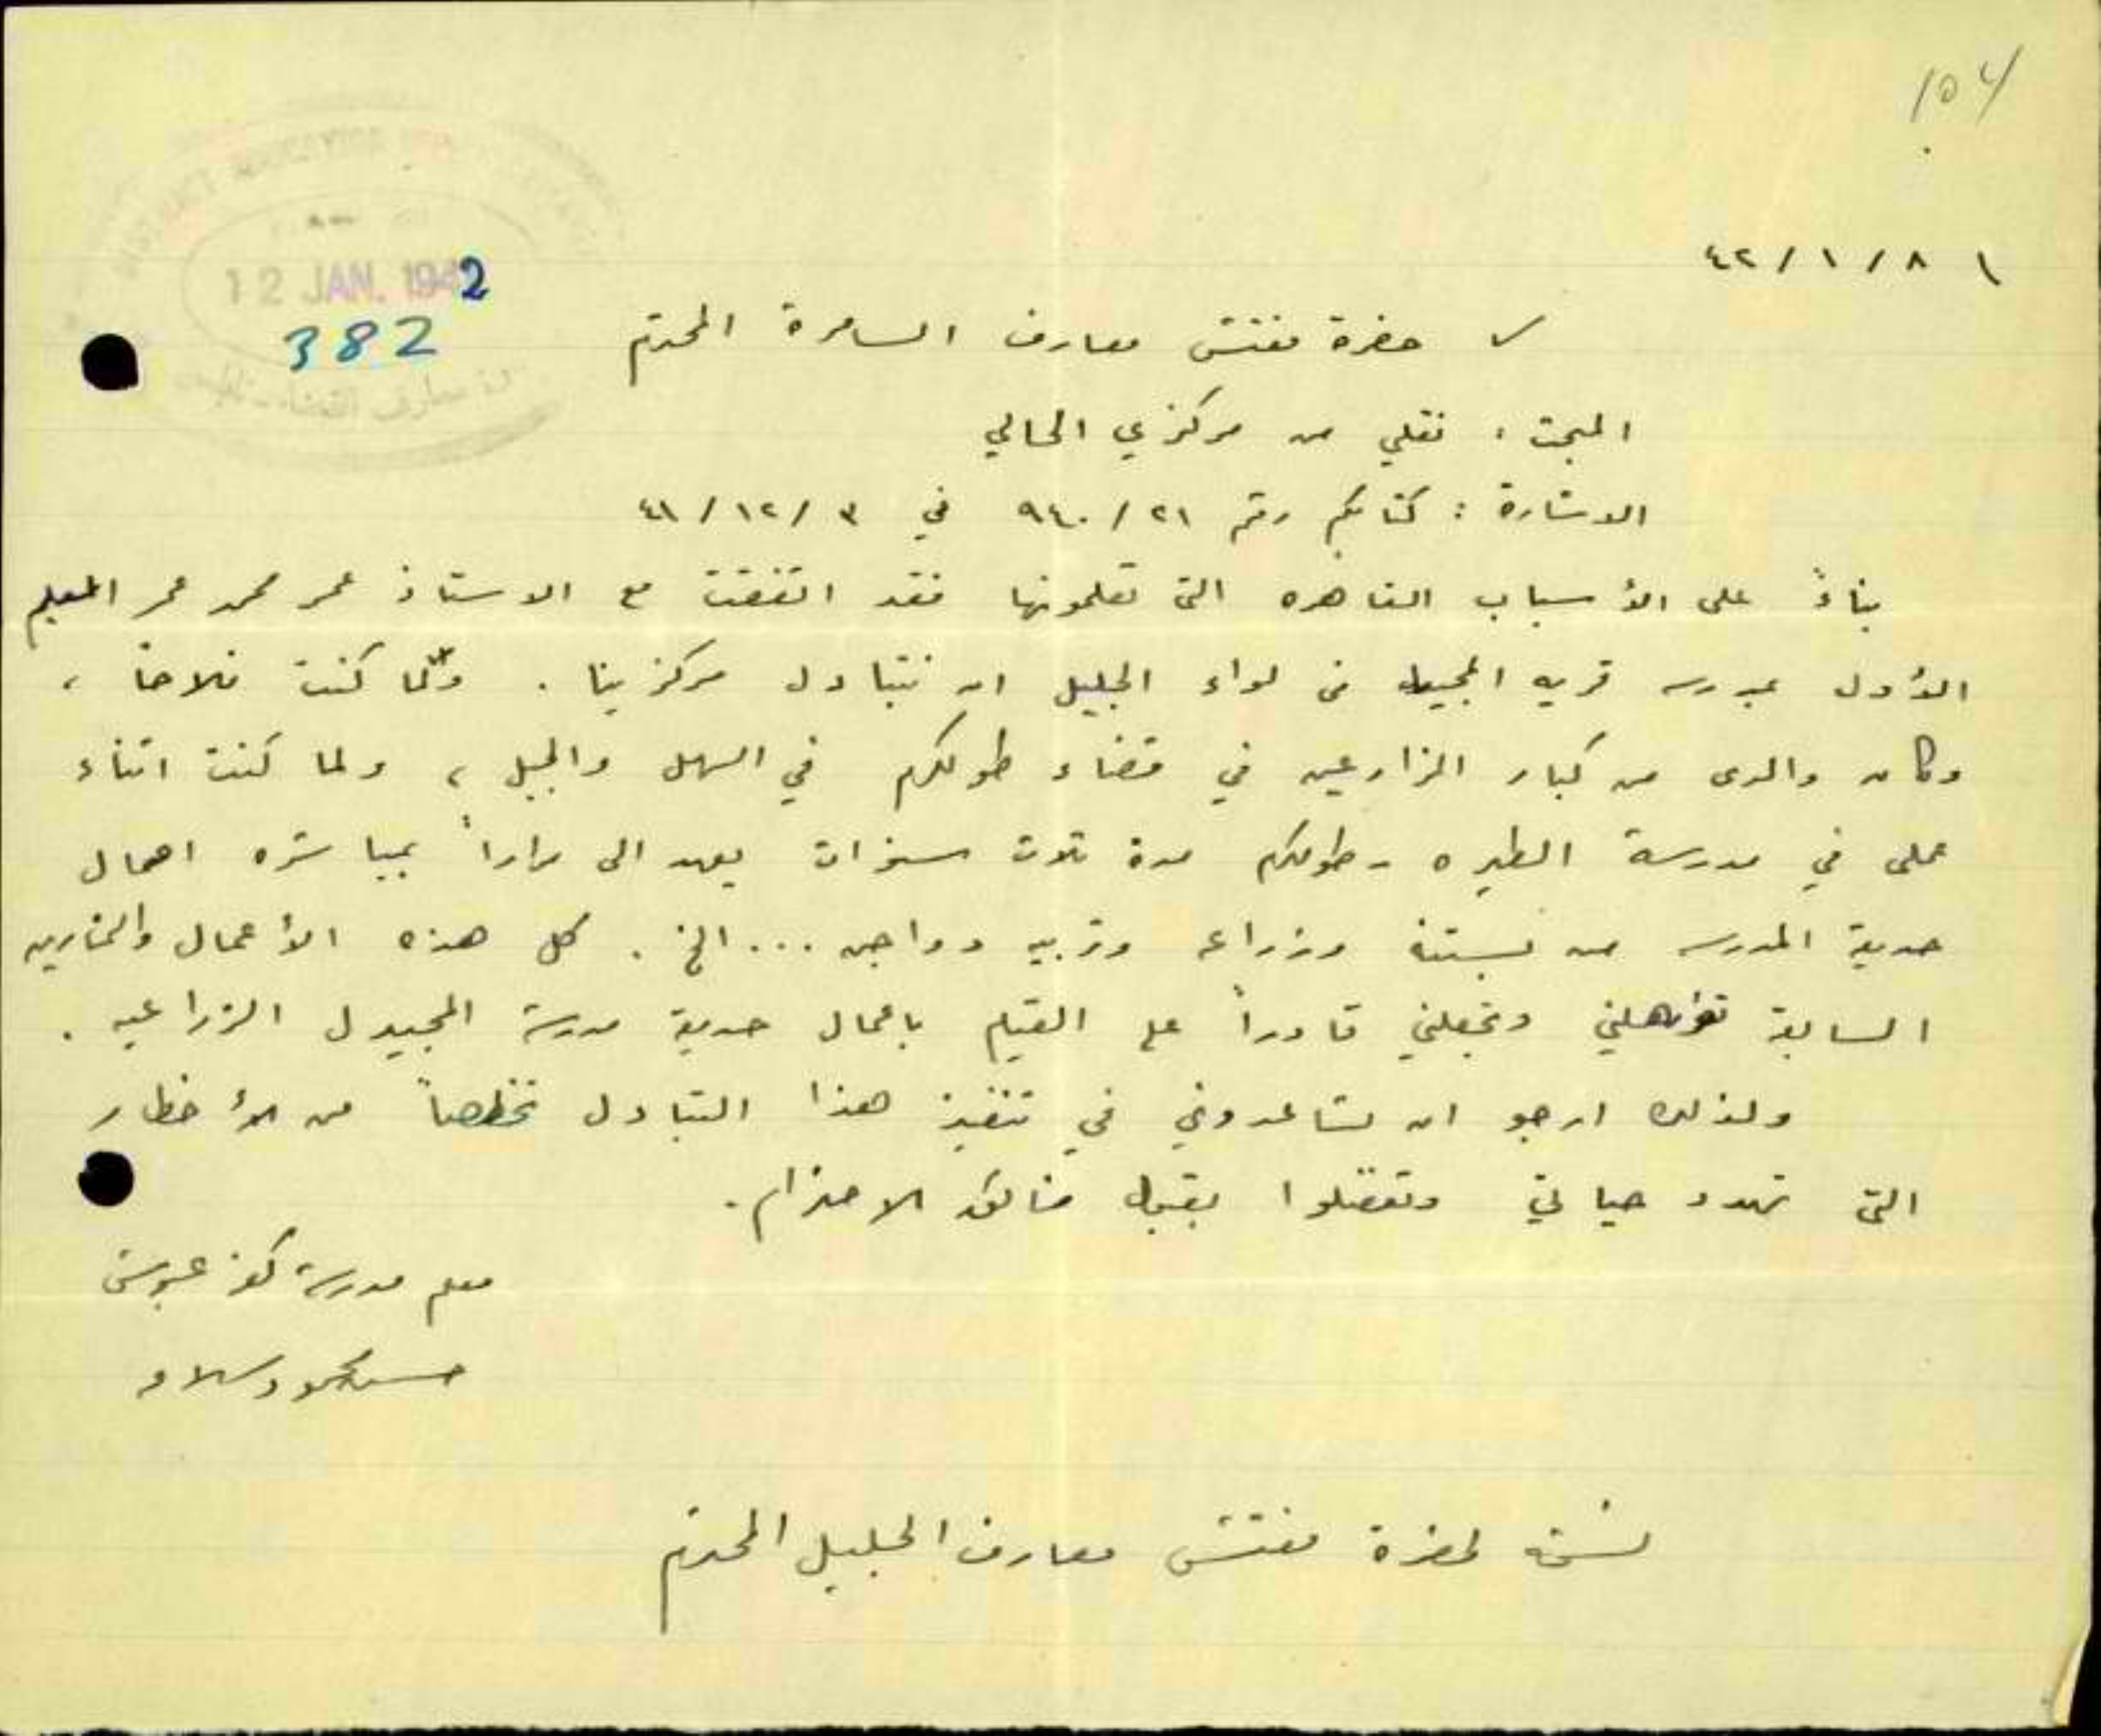 ١٥٤
٤٢/١/٨
حضرة مفتش معارف السامرة المحترم
12 JAN. 1942
382
المبحث: نقلي من مركزي الحالي
الاشارة: كتابكم رقم ٩٤٠/٢١ في ٤١/١٢/٣
بناءً على الأسباب القاهره التى تعلمونها فقد اتفقت مع الاستاذ عمر محمد عمر المعلم
الأول بمدرسه قريه المجيدل من لواء الجليل ان نتبادل مركزينا. ولما كنت فلاحاً،
وكان والدى من كبار المزارعين في قضاء طولكرم في السهل والجبل، ولما كنت اثناء
عملى في مدرسة الطيره - طولكرم مدة ثلاث سنوات يعهد الى مراراً بمباشره اعمال
حديقة المدرسه من بستنة وزراعه وتربيه دواجن ... الخ. كل هذه الأعمال والتمارين
السابقة تؤهلني وتجعلني قادراً على القيام باعمال حديقة مدرسة المجيدل الزراعيه.
ولذلك ارجو ان تساعدوني في تنفيذ هذا التبادل تخلصاً من الأخطار
التى تهدد حياتي وتفضلوا بقبول فائق الاحترام.
معلم مدرسة كفر عبوش
حسن محمود سلامه
نسخه لحضرة مفتش معارف الجليل المحترم